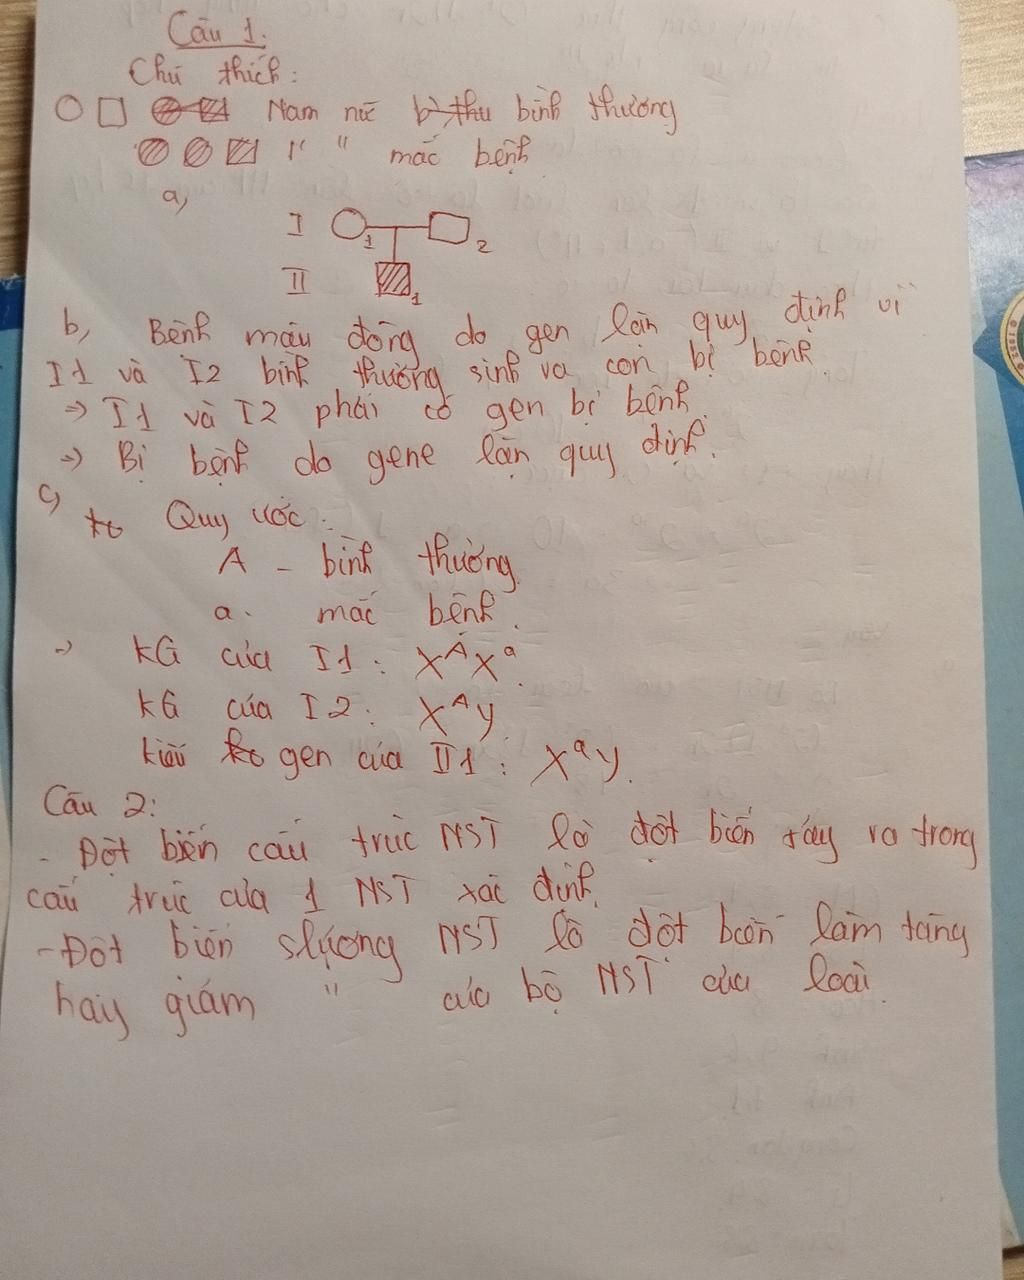 Câu 1.
Chú thích:
Nam nữ b thu bình thương
" " mắc bệnh
a,
I 1 2
II 1
b, Bệnh máu đông do gen lặn quy định vì
I1 và I2 bình thường sinh ra con bị bệnh.
=> I1 và I2 phải có gen bị bệnh.
=> Bị bệnh do gene lặn quy định.
c, Quy ước:
A - bình thường.
a. mắc bệnh.
-> KG của I1: XᴬXᵃ.
KG của I2: XᴬY.
kiểu gen của II1: XᵃY.
Câu 2:
- Đột biến cấu trúc NST là đột biến xảy ra trong
cấu trúc của 1 NST xác định.
- Đột biến slượng NST là đột biến làm tăng
hay giảm " của bộ NST của loài.